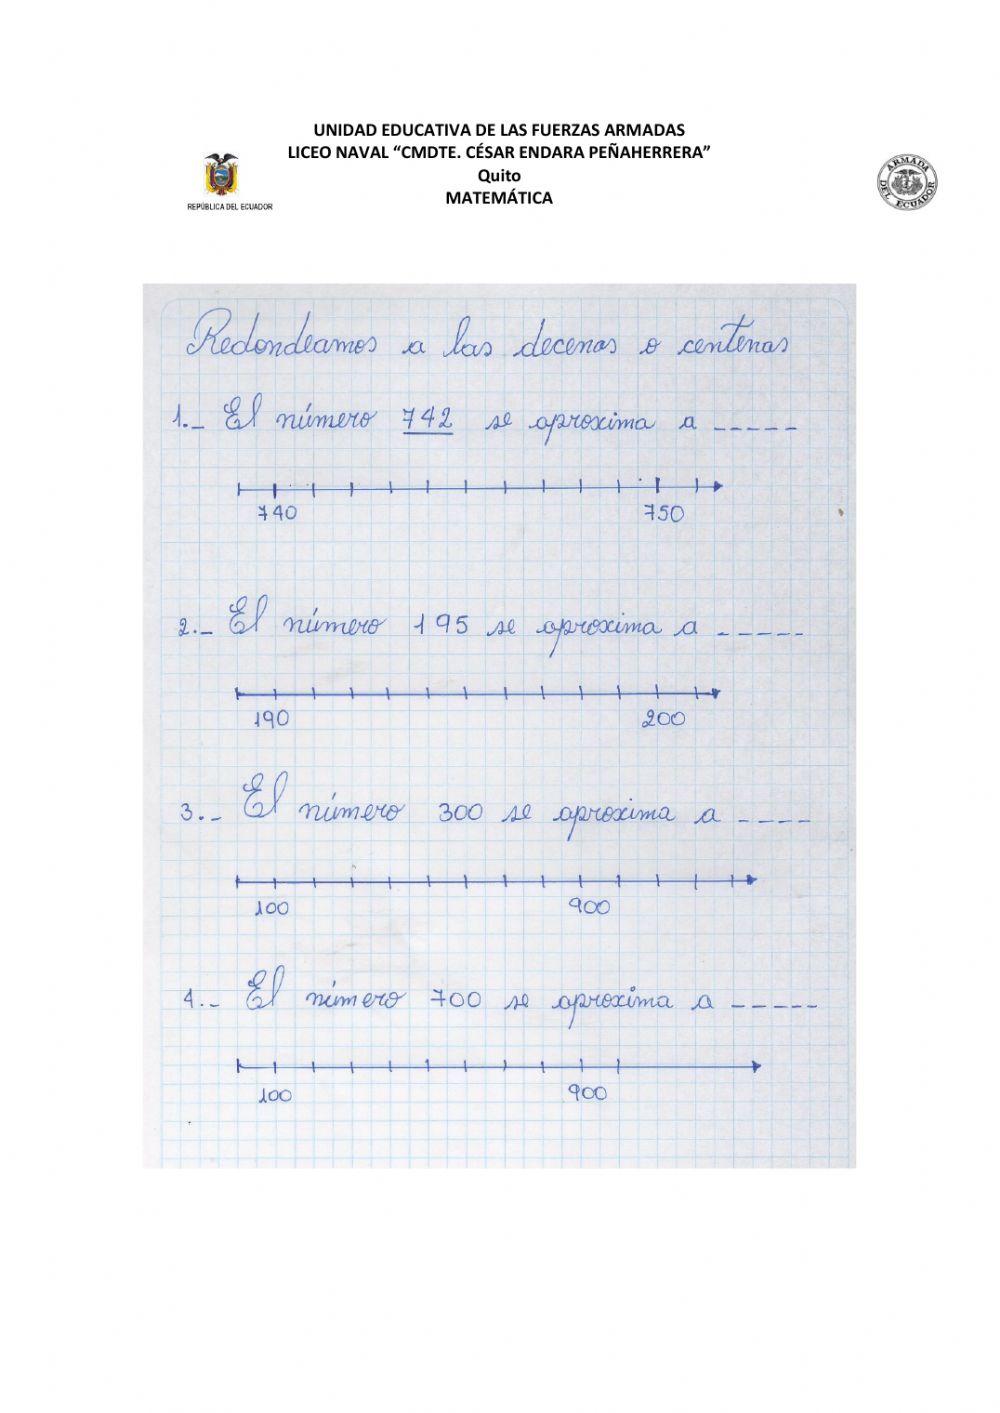 UNIDAD EDUCATIVA DE LAS FUERZAS ARMADAS
LICEO NAVAL “CMDTE. CÉSAR ENDARA PEÑAHERRERA”
Quito
MATEMÁTICA
REPÚBLICA DEL ECUADOR
ARMADA DEL ECUADOR
Redondeamos a las decenas o centenas
1._ El número 742 se aproxima a _____
740 750
2._ El número 195 se aproxima a _____
190 200
3._ El número 300 se aproxima a ____
100 900
4._ El número 700 se aproxima a _____
100 900